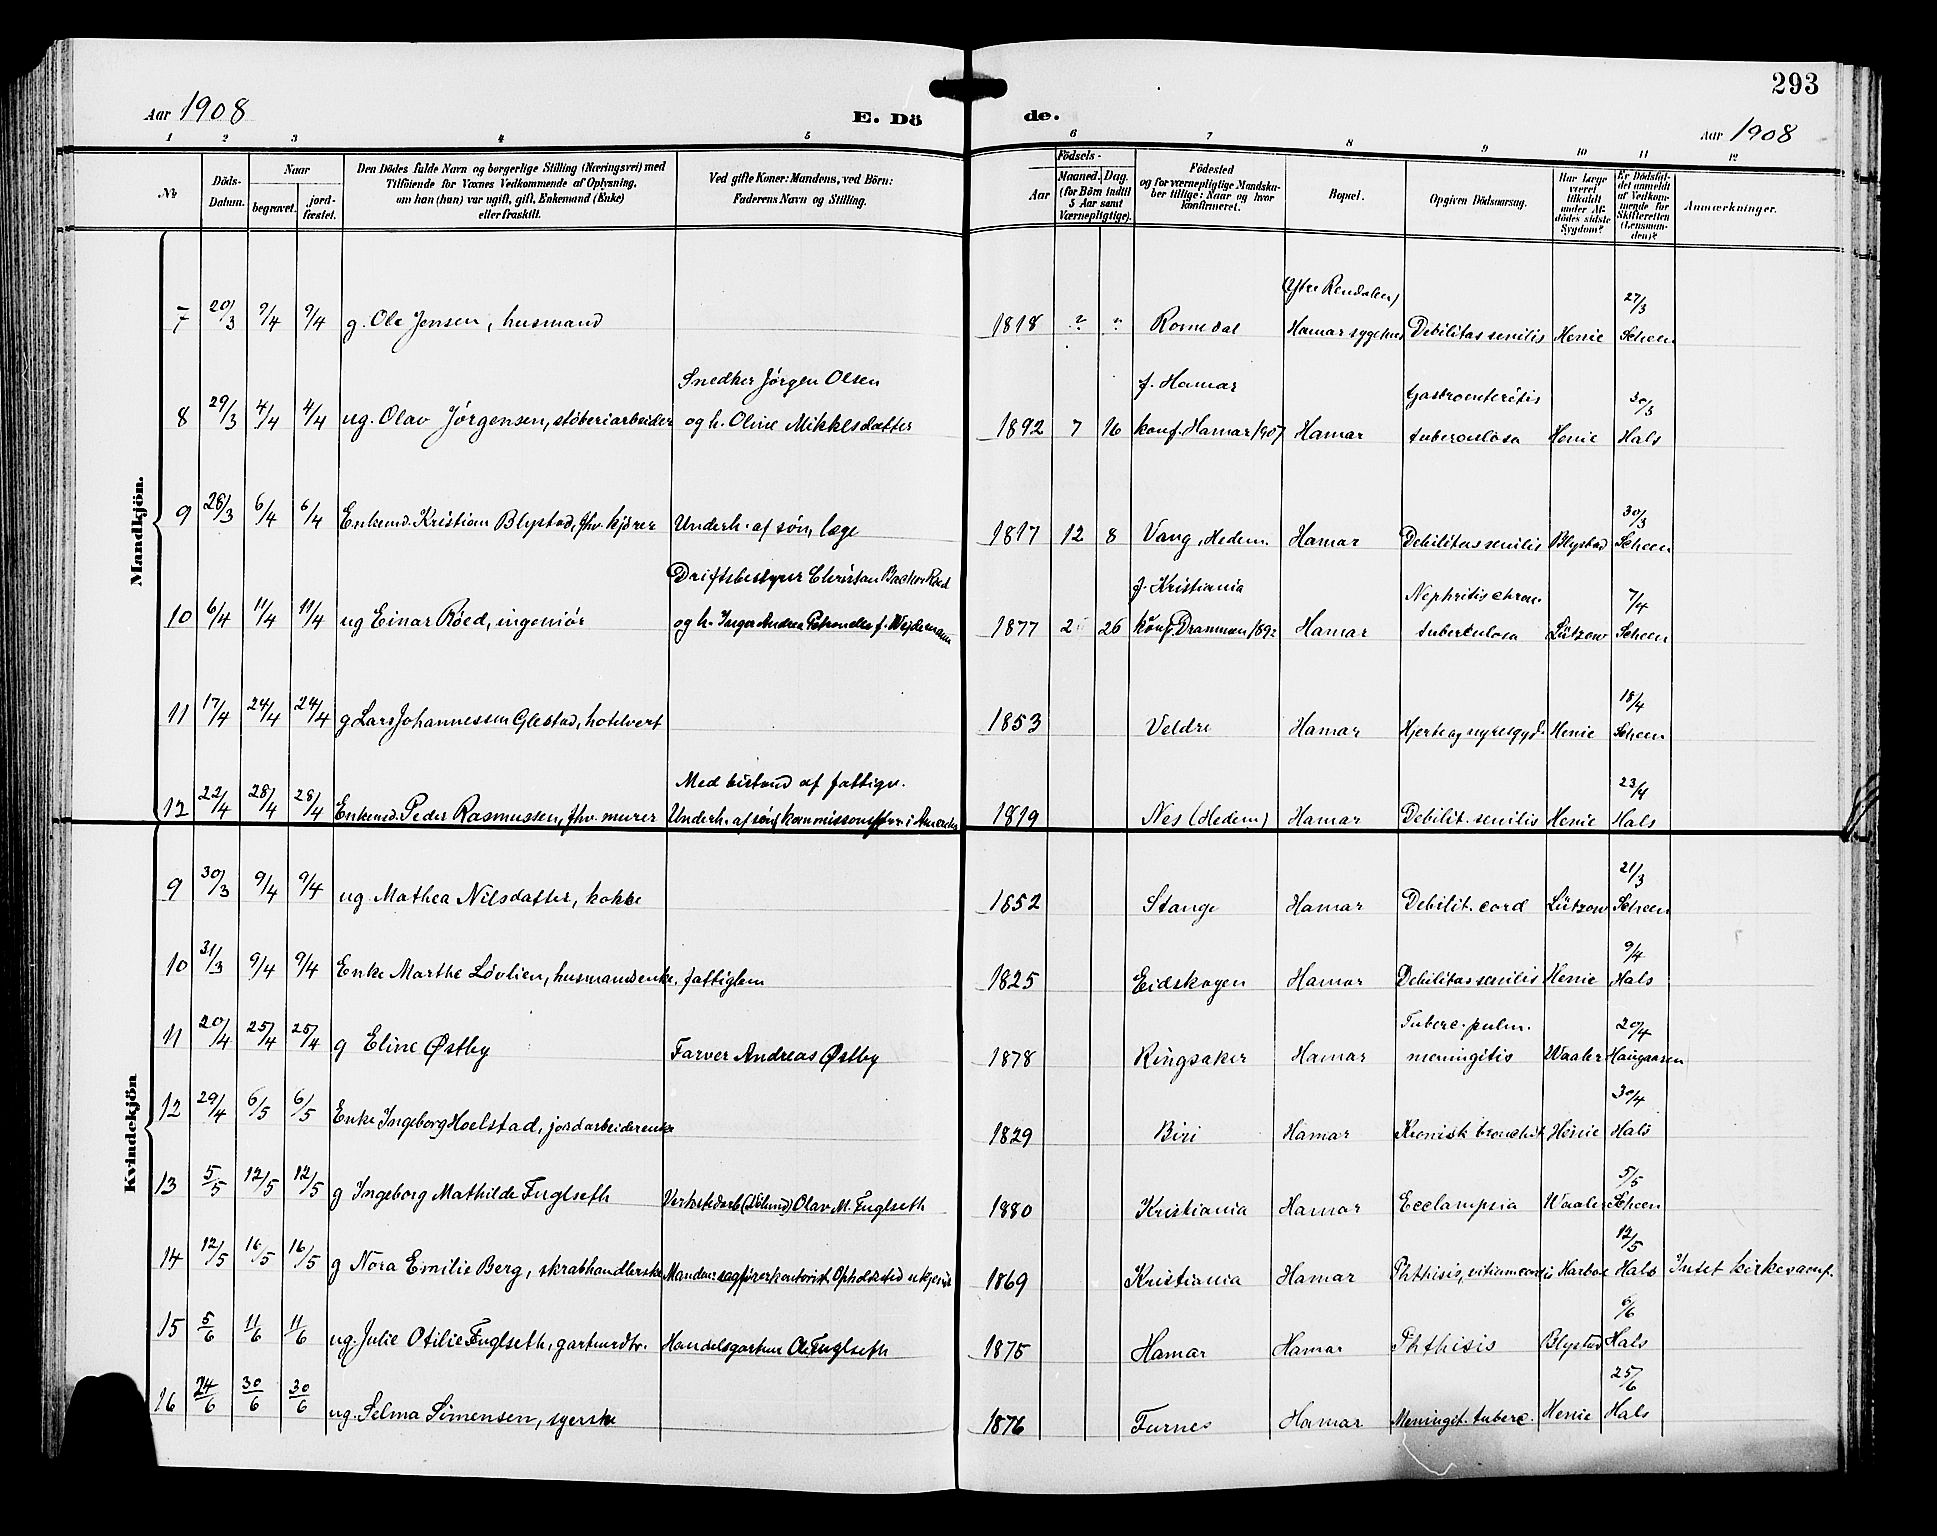 293
Aar 1908
E. Dö
de.
Aar 1908
1 2 3 4 5 6 7 8 9 10 11 12
No
Döds-Datum.
Naar
begravet.
jord-fæstet.
Den Dödes fulde Navn og borgerlige Stilling (Næringsvei) med
Tilföiende for Voxnes Vedkommende af Oplysning,
om han (hun) var ugift, gift, Enkemand (Enke)
eller fraskilt.
Ved gifte Koner: Mandens, ved Börn:
Faderens Navn og Stilling.
Födsels-
Aar
Maaned. Dag.
(for Börn indtil
5 Aar samt
Værnepligtige).
Födested
og for værnepligtige Mandska-
ber tillige: Naar og hvor
konfirmeret.
Bopæl.
Opgiven Dödsaarsag.
Har Læge
været
tilkaldt
under Af-
dødes sidste
Sygdom?
Er Dödsfal-
det anmeldt
af Vedkom-
mende for
Skifteretten
(Lensman-
den)?
Anmærkninger.
Mandkjön.
(Ytre Rendalen)
7 20/3 9/4 9/4 g. Ole Jensen, husmand 1818 ? " Romedal Hamar sygehus Debilitas senilis Henie 27/3 Scheen
Snedker Jørgen Olsen f. Hamar Gastroenteritis
8 29/3 4/4 4/4 ug. Olav Jørgensen, støberiarbeider og h. Oline Mikkelsdatter 1892 7 16 konf. Hamar 1907 Hamar tuberculosa Henie 30/3 Hals
9 28/3 6/4 6/4 Enkemd. Kristian Blystad, fhv. kjører Underh. af søn, læge 1817 12 8 Vang, Hedem. Hamar Debilitas senilis Blystad 30/3 Scheen
Driftsbestyrer Christian Backer Røed f. Kristiania Nephritis chron
10 6/4 11/4 11/4 ug Einar Røed, ingeniør og h. Inger Andrea Petronelle f. Wejdemann 1877 2 26 konf. Drammen 1892 Hamar tuberkulosa Lützow 7/4 Scheen
11 17/4 24/4 24/4 g Lars Johannessen Glestad, hotelvert 1853 Veldre Hamar Hjerte og nyresygd. Henie 18/4 Scheen
Med bistand af fattigv.
12 22/4 28/4 28/4 Enkemd. Peder Rasmussen, fhv. murer Underh. af søn, i Amerika 1819 Nes (Hedem) Hamar Debilit. senilis Henie 23/4 Hals
Kvindekjön
9 30/3 9/4 9/4 ug. Mathea Nilsdatter, kokke 1852 Stange Hamar Debilit. cord Lützow 21/3 Scheen
10 31/3 9/4 9/4 Enke Marthe Løvlien, husmandsenke, fattiglem 1825 Eidskogen Hamar Debilitas senilis Henie 9/4 Hals
Tuberc. pulm.
11 20/4 25/4 25/4 g Eline Østby Farver Andreas Østby 1878 Ringsaker Hamar meningitis Waaler 20/4 Haugaasen
12 29/4 6/5 6/5 Enke Ingeborg Hoelstad, jordarbeiderenke 1829 Biri Hamar Kronisk bronchit Henie 30/4 Hals
13 5/5 12/5 12/5 g Ingeborg Mathilde Fuglseth Verkstedarb. Olav M. Fuglseth 1880 Kristiania Hamar Ecclampsia Waaler 5/5 Scheen
14 12/5 16/5 16/5 g Nora Emilie Berg, skrabhandlerske Manden: sagførerkontorist. Opholdsted ukjendt 1869 Kristiania Hamar Phthisis, vitium cordis Harboe 12/5 Hals Intet kirkesamf.
15 5/6 11/6 11/6 ug. Julie Otilie Fuglseth, gartnerdtr. Handelsgartner O. Fuglseth 1875 Hamar Hamar Phthisis Blystad 6/6 Hals
16 24/6 30/6 30/6 ug. Selma Simensen, syerske 1876 Furnes Hamar Meningit. tuberc. Henie 25/6 Hals